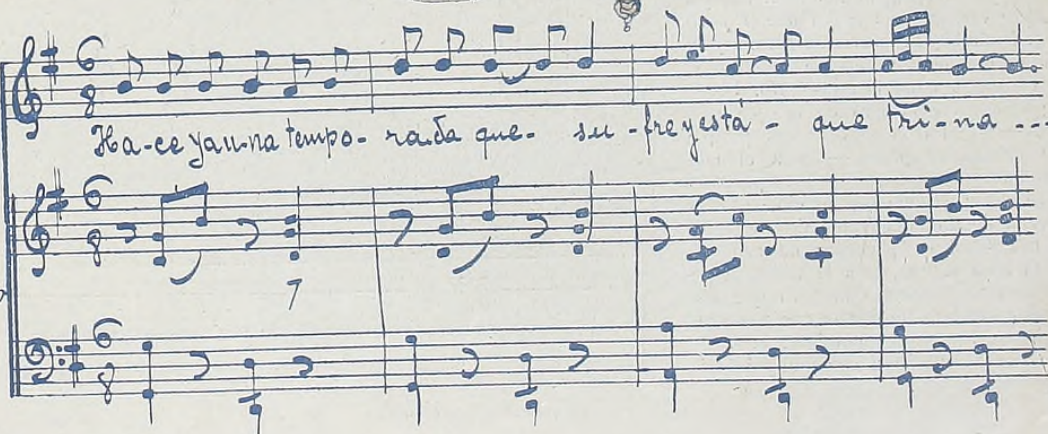 Ha-ce yau-na tempo-rada que- su-freyestá- que tri-na ...